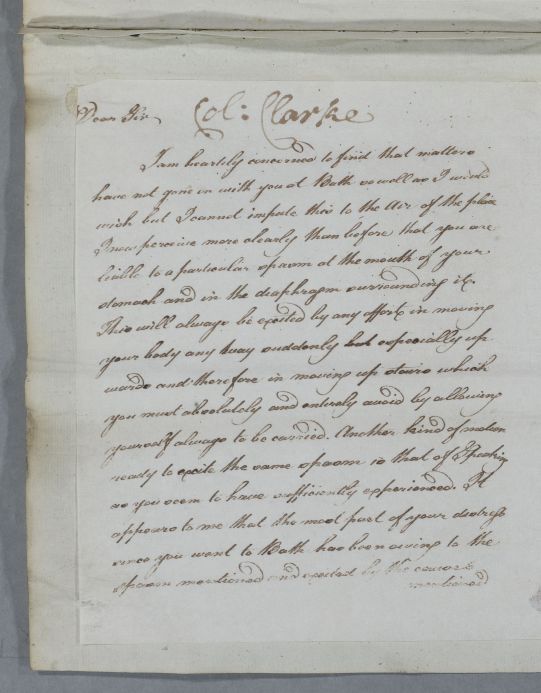 Dear Sir
Col: Clarke
I am heartily concerned to find that matters
have not gone on with you at Bath so well as I would
wish but I cannot impute this to the Air of the place
I now perceive more clearly than before that you are
liable to a particular spasm at the mouth of your
stomach and in the diaphragm surrounding it.
This will always be excited by any effort in moving
your body any way suddenly but especially up
wards and therefore in moving up stairs which
you must absolutely and entirely avoid by allowing
yourself always to be carried. Another kind of motion
ready to excite the same spasm is that of Speaking
as you seem to have sufficiently experienced. It
appears to me that the most part of your distress
since you went to Bath has been owing to the
spasm mentioned and excited by the causes
mentioned